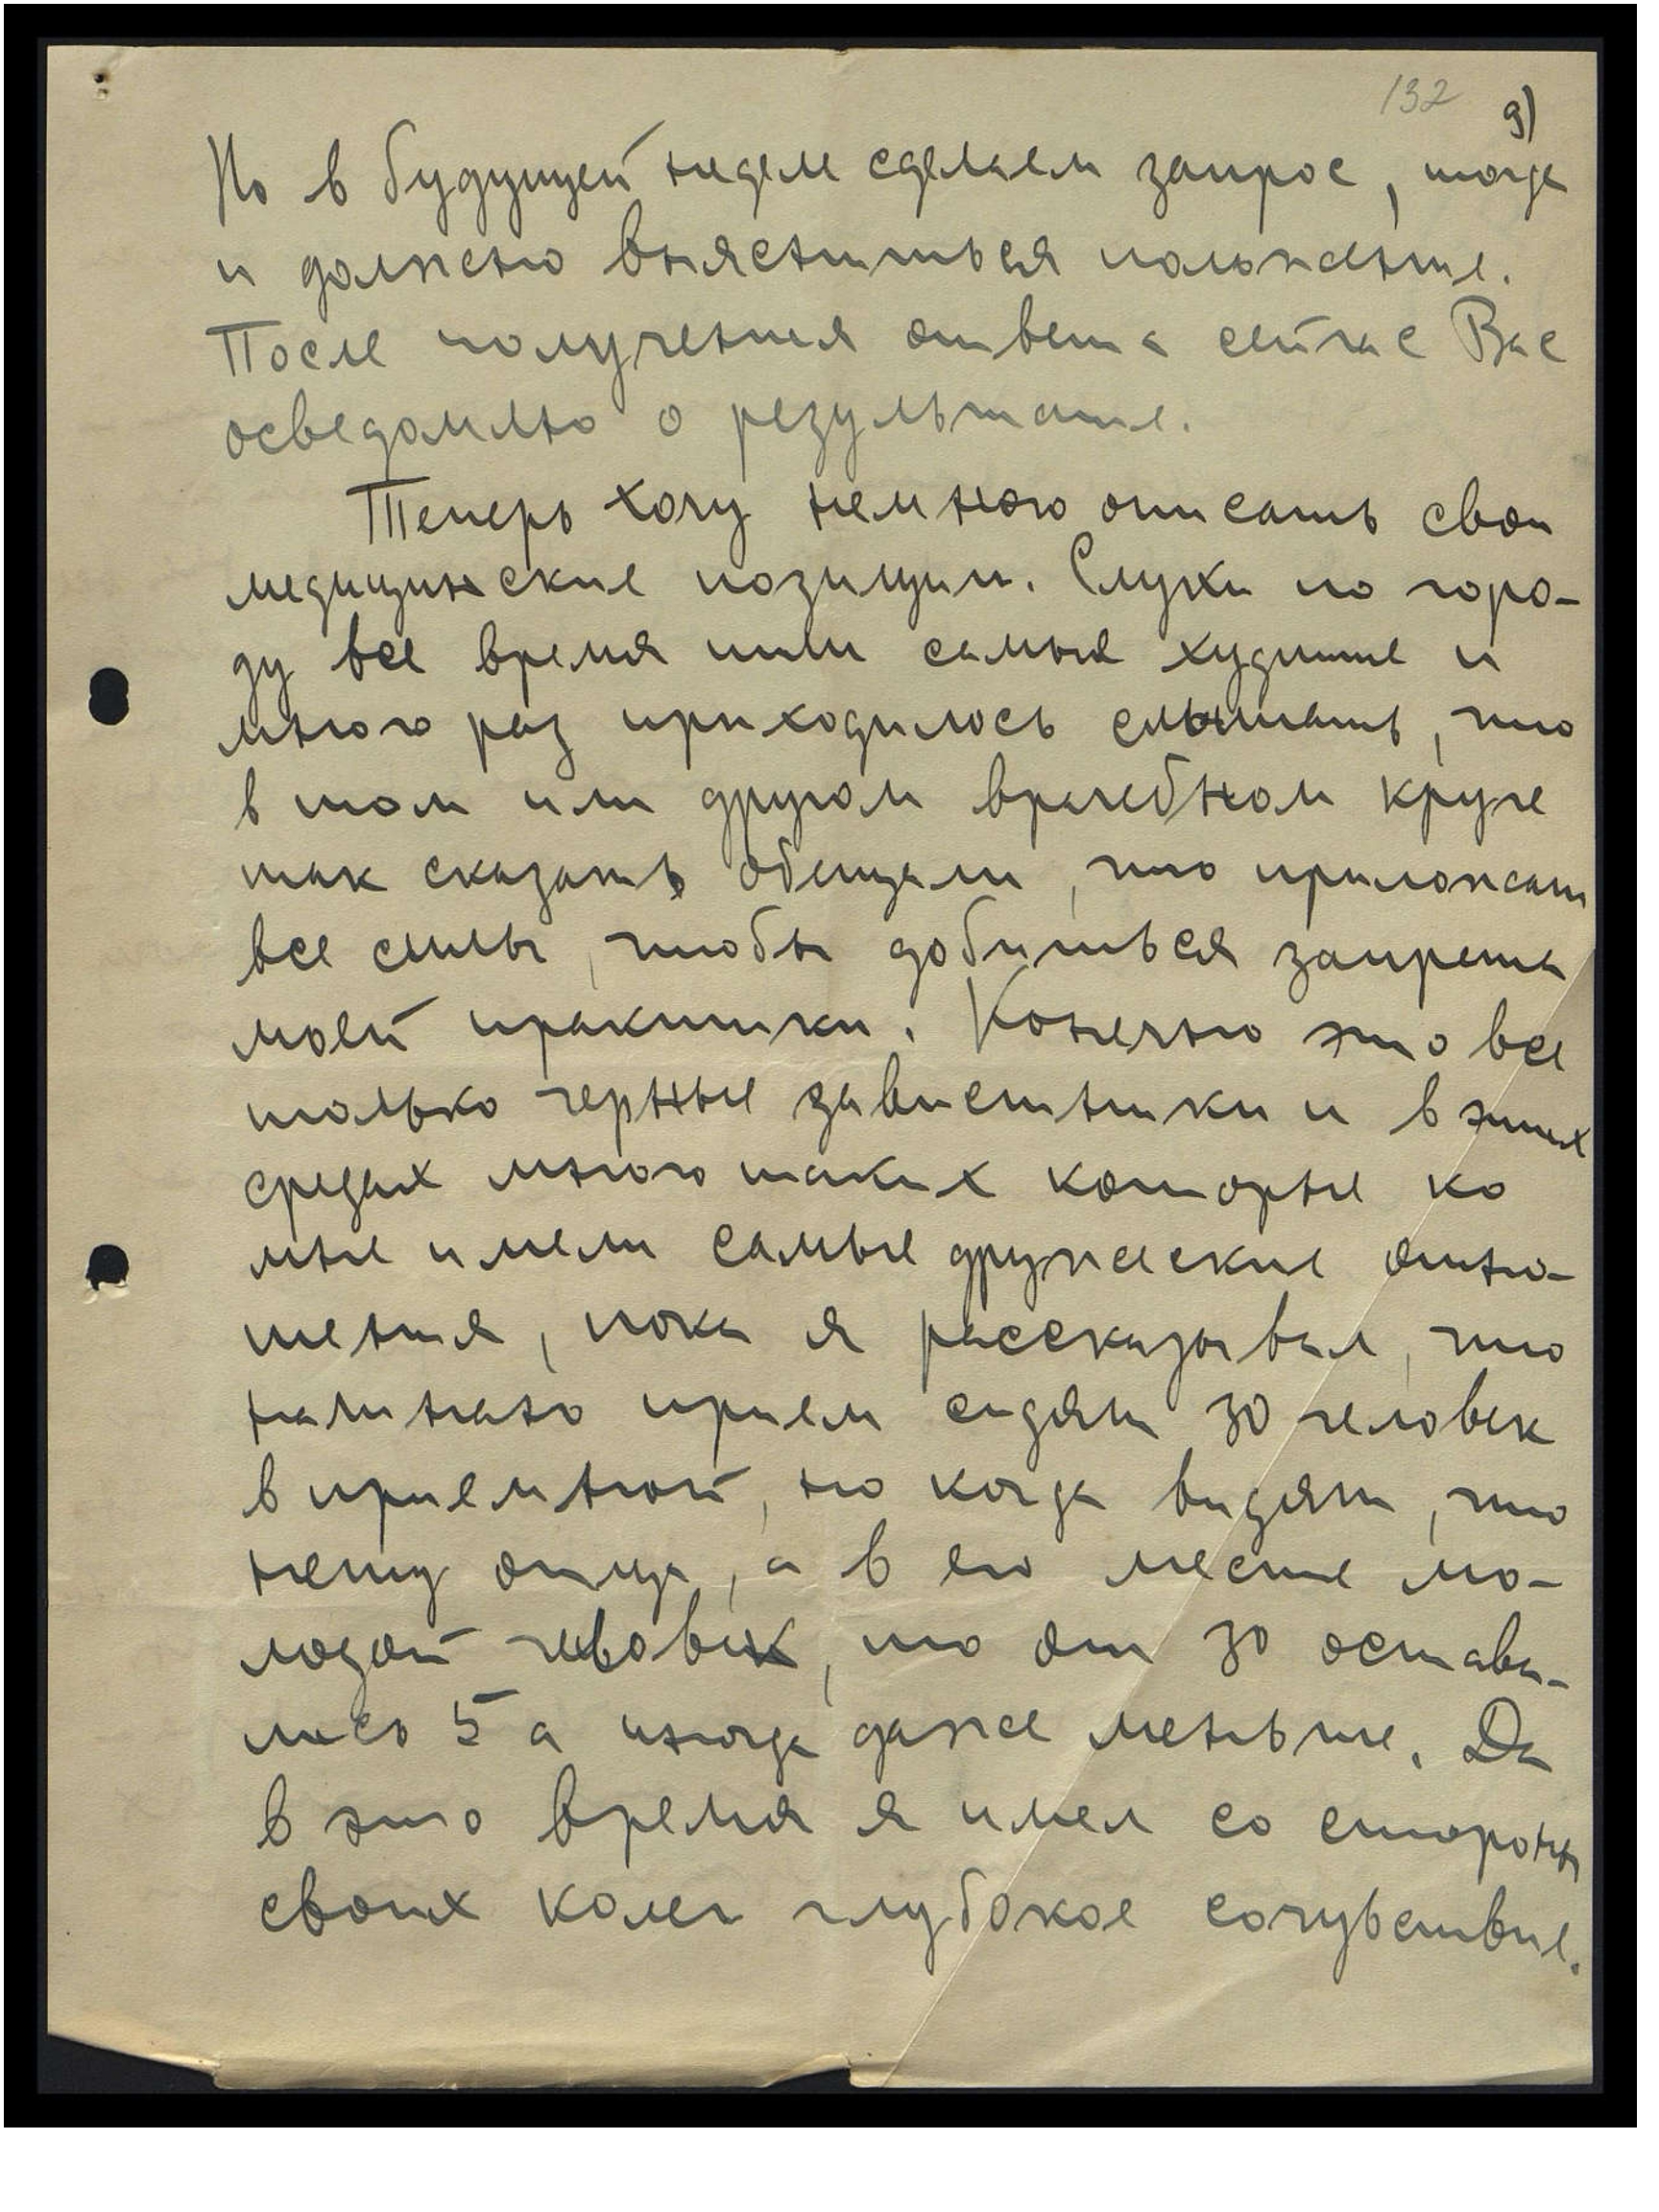 132 9)
Но в будущей неделе сделаем запрос, тогда
и должно выясниться положение.
После получения ответа сейчас Вас
осведомлю о результате.
Теперь хочу немного описать свои
медицинские позиции. Слухи по горо-
ду все время шли самыя худшие и
много раз приходилось слышать, что
в том или другом врачебном круге
так сказать обещали, что приложат
все силы, чтобы добиться запрета
моей практики. Конечно это все
только черные завистники и в этих
средах много таких которые ко
мне имели самые дружеские отно-
шения, пока я рассказывал, что
начинаю прием сидят 30 человек
в приемной, но когда видят, что
нету отца, а в его месте мо-
лодой человек, то от 30 остава-
лись 5 а иногда даже меньше. Да
в это время я имел со стороны
своих колег глубокое сочувствие.